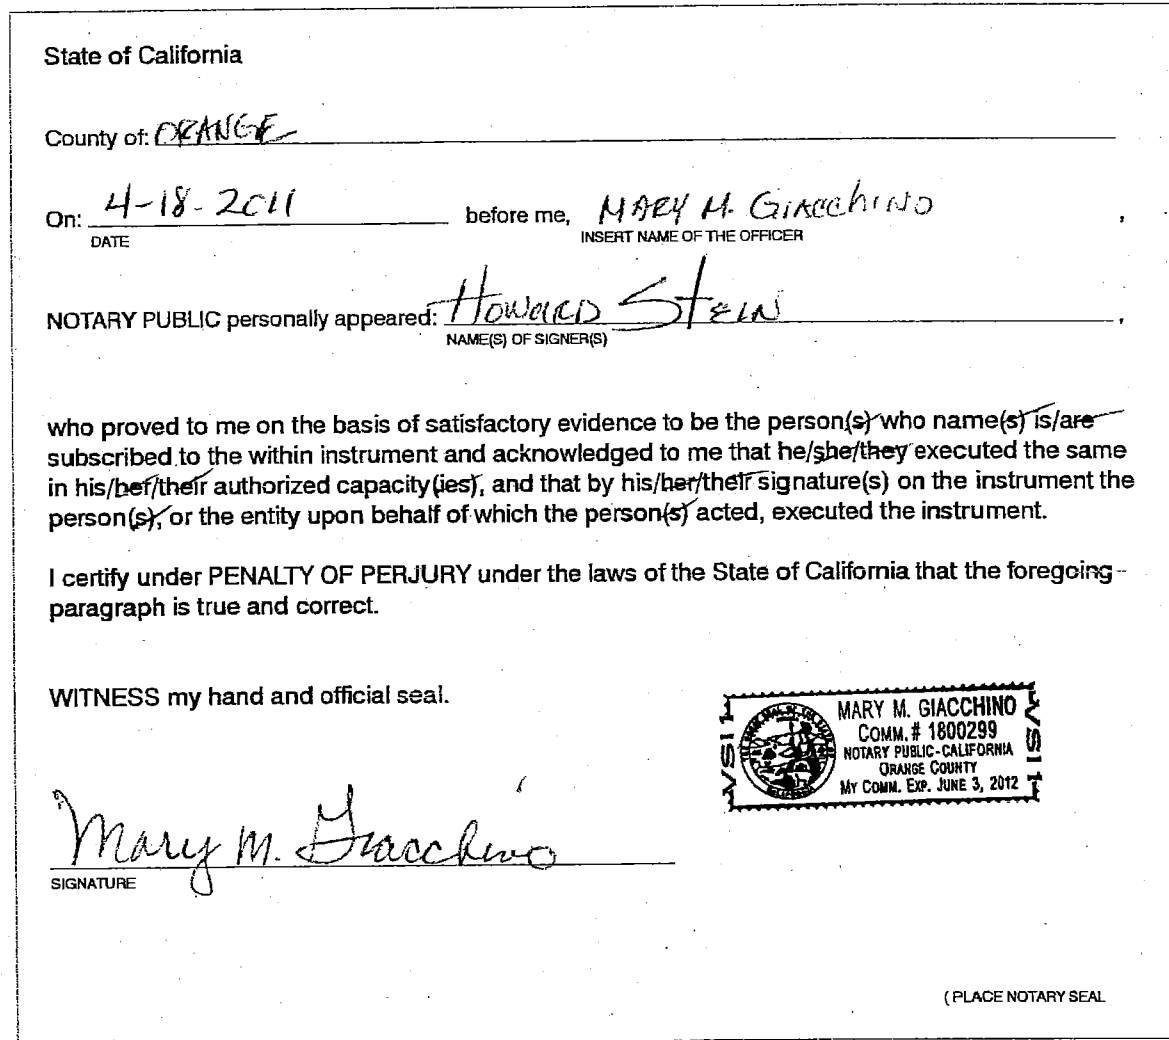 State of California
County of: ORANGE
On: 4-18-2011 before me, MARY M. GIACCHINO ,
DATE INSERT NAME OF THE OFFICER
NOTARY PUBLIC personally appeared: HOWARD STEIN ,
NAME(S) OF SIGNER(S)
who proved to me on the basis of satisfactory evidence to be the person(s) who name(s) is/are
subscribed to the within instrument and acknowledged to me that he/she/they executed the same
in his/her/their authorized capacity(ies), and that by his/her/their signature(s) on the instrument the
person(s), or the entity upon behalf of which the person(s) acted, executed the instrument.
I certify under PENALTY OF PERJURY under the laws of the State of California that the foregoing
paragraph is true and correct.
WITNESS my hand and official seal.
MARY M. GIACCHINO
COMM. # 1800299
NOTARY PUBLIC-CALIFORNIA
ORANGE COUNTY
MY COMM. EXP. JUNE 3, 2012
VSI 1
VSI 1
Mary M. Giacchino
SIGNATURE
(PLACE NOTARY SEAL